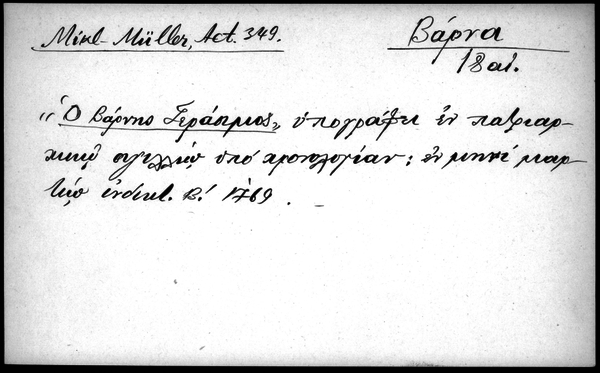 Mikl-Müller, Act. 349.
Βάρνα
18 αἰ.
«Ὁ Βάρνης Γεράσιμος» ὑπογράφει ἐν πατριαρ-
χικῷ σιγιλλίῳ ὑπό χρονολογίαν: ἐν μηνί μαρ-
τίῳ ἰνδικτ. Β! 1769.